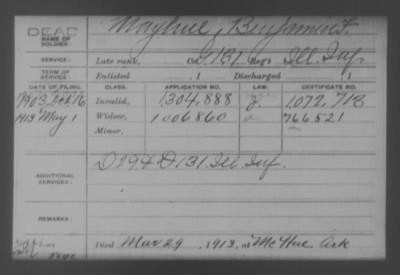 DEAD
NAME OF SOLDIER: Mayhue, Benjamin F.
SERVICE: Late rank, Co. G, 131 Reg't Ill. Inf.
TERM OF SERVICE: Enlisted , 1 Discharged , 1
DATE OF FILING. CLASS. APPLICATION NO. LAW. CERTIFICATE NO.
1903 Feb 16 Invalid, 1,304,888 1,072,713
1913 May 1 Widow, 1006860 766.521
Minor,
ADDITIONAL SERVICES: D 29 & D 131 Ill. Inf.
REMARKS:
Died Mar 29, 1913, at McHue Ark